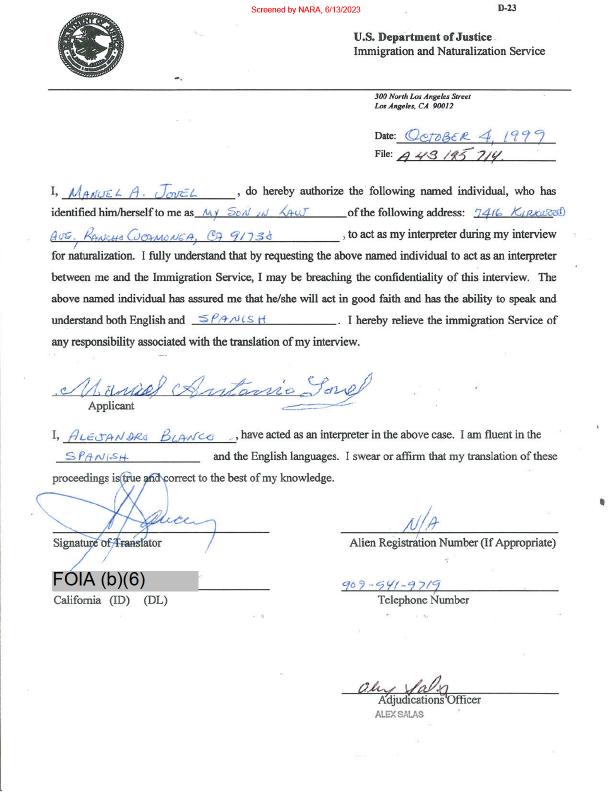 Screened by NARA, 6/13/2023
D-23
U.S. Department of Justice
Immigration and Naturalization Service
300 North Los Angeles Street
Los Angeles, CA 90012
Date: OCTOBER 4, 1999
File: A 43 195 714.
I, MANUEL A. JOVEL, do hereby authorize the following named individual, who has
identified him/herself to me as MY SON IN LAW of the following address: 7416 KIRKWOOD
AVE, RANCHO CUCAMONGA, CA 91738, to act as my interpreter during my interview
for naturalization. I fully understand that by requesting the above named individual to act as an interpreter
between me and the Immigration Service, I may be breaching the confidentiality of this interview. The
above named individual has assured me that he/she will act in good faith and has the ability to speak and
understand both English and SPANISH. I hereby relieve the immigration Service of
any responsibility associated with the translation of my interview.
Manuel Antonio Jovel
Applicant
I, ALEJANDRO BLANCO, have acted as an interpreter in the above case. I am fluent in the
SPANISH and the English languages. I swear or affirm that my translation of these
proceedings is true and correct to the best of my knowledge.
N/A
Signature of Translator
Alien Registration Number (If Appropriate)
FOIA (b)(6)
909-541-9719
California (ID) (DL)
Telephone Number
Alex Salas
Adjudications Officer
ALEX SALAS